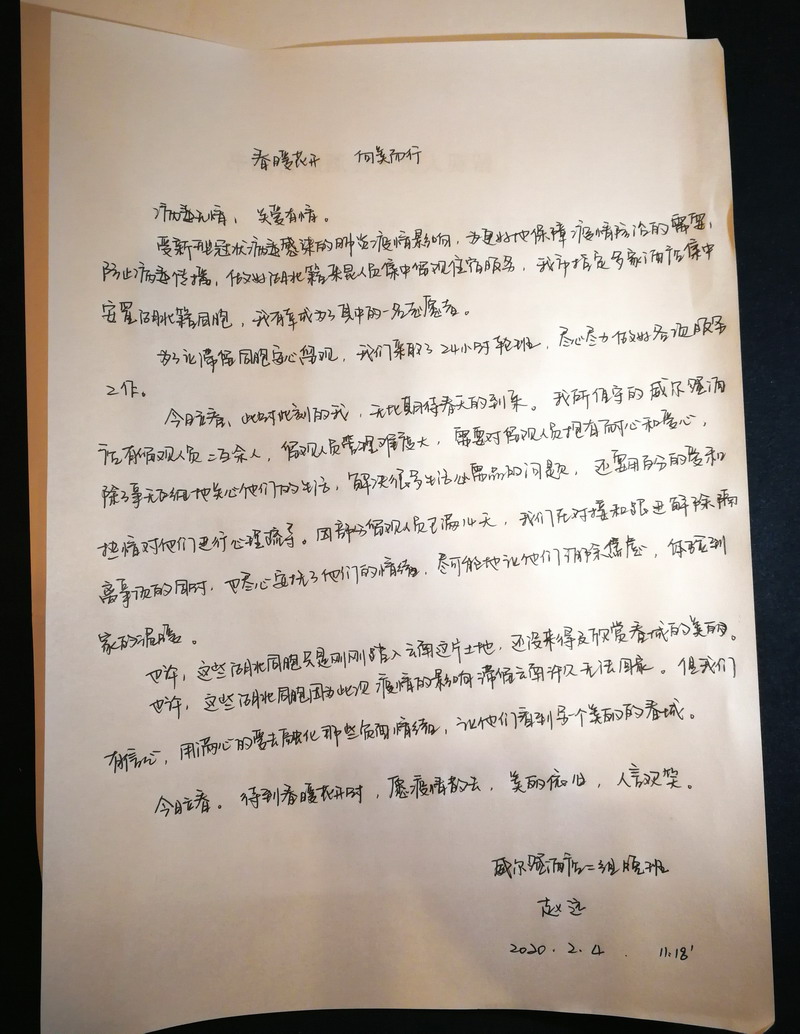 春暖花开 向美而行
病毒无情、关爱有情。
受新型冠状病毒感染的肺炎疫情影响，为更好地保障疫情防治的需要，
防止病毒传播，做好湖北籍来昆人员集中留观住宿服务，我市指定多家酒店集中
安置湖北籍同胞，我有幸成为了其中的一名志愿者。
为了让滞留同胞安心留观，我们采取了24小时轮班，尽心尽力做好各项服务
工作。
今日立春，此时此刻的我，无比期待春天的到来。我所值守的威尔登酒
店有留观人员二百余人，留观人员管理难度大，需要对留观人员抱有耐心和爱心，
除了事无巨细地关心他们的生活，解决很多生活必需品的问题，还要用百分的爱和
热情对他们进行心理疏导。因部分留观人员已满14天，我们在对接和跟进解除隔
离事项的同时，也尽心安抚了他们的情绪，尽可能地让他们消除焦虑，体验到
家的温暖。
也许，这些湖北同胞只是刚刚踏入云南这片土地，还没来得及欣赏春城的美丽。
也许，这些湖北同胞因为此次疫情的影响滞留云南许久无法回家。但我们
有信心，用满心的爱去融化那些负面情绪，让他们看到另一个美丽的春城。
今日立春。待到春暖花开时，愿疫情散去，美丽依旧，人言欢笑。
威尔登酒店二组晚班
赵远
2020.2.4. 11:18'